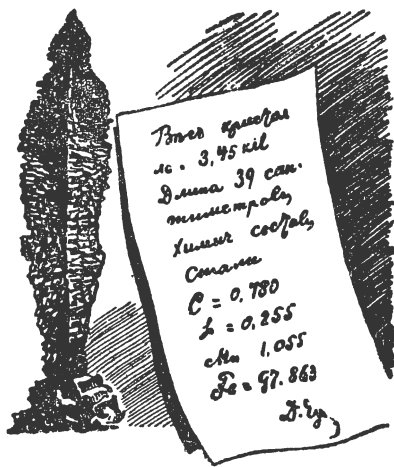 Вѣсъ кристал
ла. 3,45 kil
Длина 39 сан.
тиметровъ
Химич составъ
Стали
C = 0,780
= 0,255
Mn 1,055
Fe = 97.863